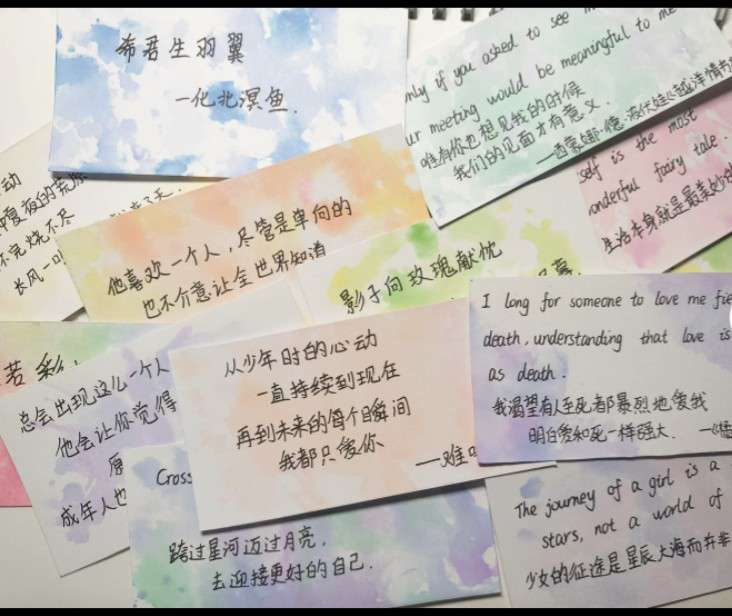 希君生羽翼
一化北溟鱼.
only if you asked to see
our meeting would be meaningful to me
唯有你也想见我的时候
我们的见面才有意义.
——西蒙娜·德·波伏娃《越洋情书
self is the most
wonderful fairy tale.
生活本身就是最美妙的
动
长风一
他喜欢一个人,尽管是单向的
也不介意让全世界知道
影子向玫瑰献忱
I long for someone to love me
death, understanding that love is
as death.
我渴望有人至死都暴烈地爱我
明白爱和死一样强大.
若彩,
总会出现这么一个人
他会让你觉得
成年人也
从少年时的心动
一直持续到现在
再到未来的每个瞬间
我都只爱你
Cross
跨过星河迈过月亮,
去迎接更好的自己.
The journey of a girl is a
stars, not a world of
少女的征途是星辰大海而并非